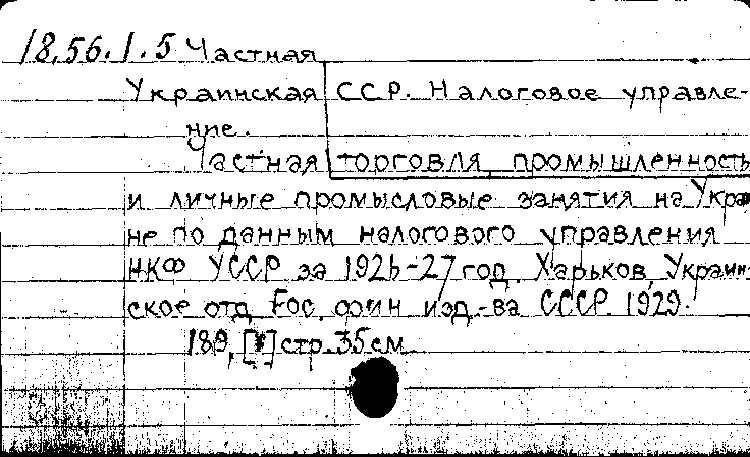 18.56.1.5 Частная
Украинская ССР. Налоговое управле-
ние.
Частная торговля, промышленность
и личные промысловые занятия на Украи
не по данным налогового управления
НКФ УССР за 1926-27 год. Харьков, Украин-
ское отд. Гос. фин. изд-ва СССР. 1929.
189, [] стр. 35 см.